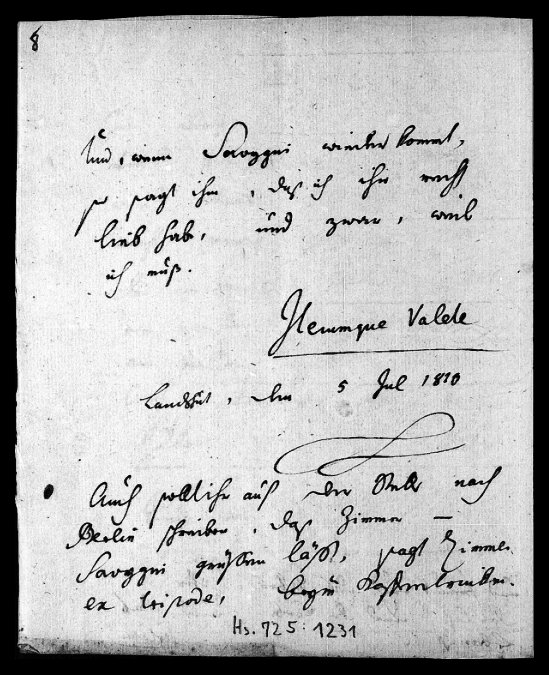 8
Und, wenn Savigni wieder kommt,
so sagt ihm, daß ich ihn recht
lieb hab, und zwar, weil
ich muß.
Iterumque Valete
Landshut, den 5 Jul 1810
Auch sollt ihr auf der Stelle nach
Berlin schreiben, daß Zimmer —
Savigni grüßen läßt, sagt Zimmer
ex tripode, beym Kaffeetrinken.
Hs. 725: 1231